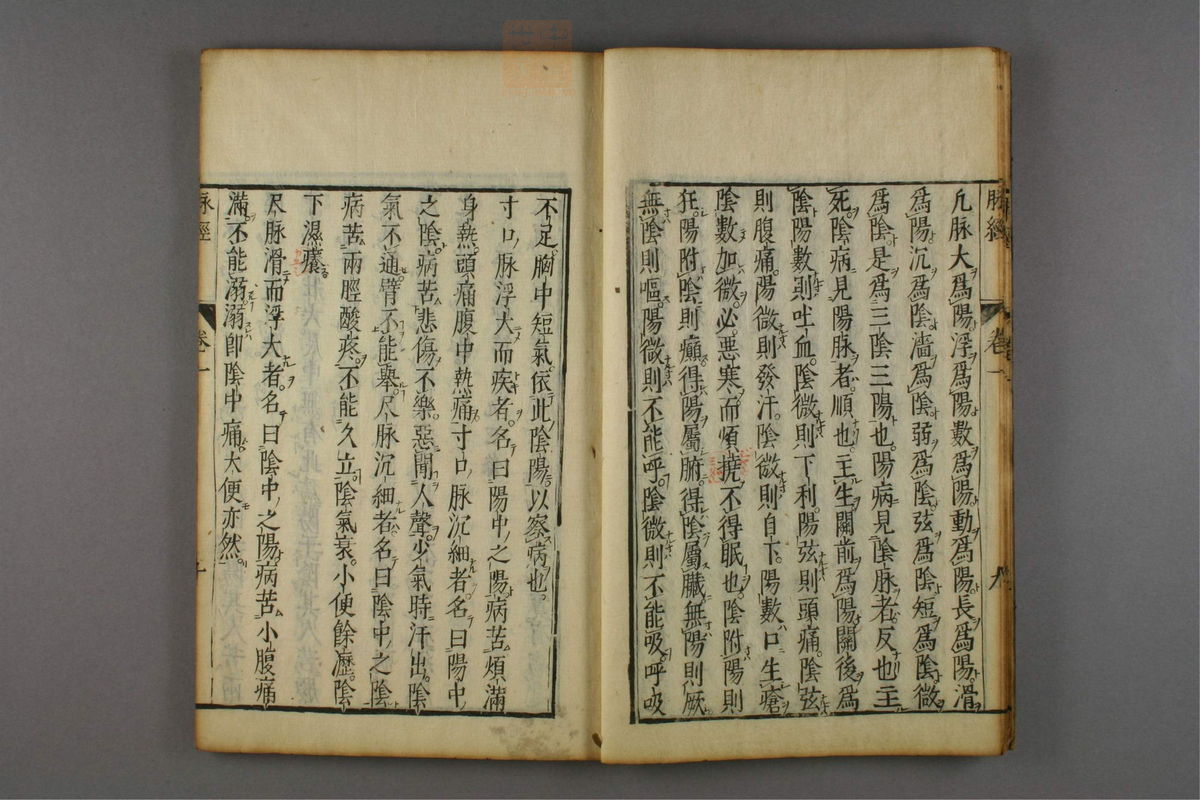 脉經
卷一
九
凡脉大爲陽浮爲陽數爲陽動爲陽長爲陽滑
爲陽沉爲陰濇爲陰弱爲陰弦爲陰短爲陰微
爲陰是爲三陰三陽也陽病見陰脉者反也主
死陰病見陽脉者順也主生關前爲陽關後爲
陰陽數則吐血陰微則下利陽弦則頭痛陰弦
則腹痛陽微則發汗陰微則自下陽數口生瘡
陰數加微必惡寒而煩撓不得眠也陰附陽則
狂陽附陰則癲得陽屬腑得陰屬臟無陽則厥
無陰則嘔陽微則不能呼陰微則不能吸呼吸
不足胸中短氣依此陰陽以察病也
寸口脉浮大而疾者名曰陽中之陽病苦煩滿
身熱頭痛腹中熱痛寸口脉沉細者名曰陽中
之陰病苦悲傷不樂惡聞人聲少氣時汗出陰
氣不通臂不能舉尺脉沉細者名曰陰中之陰
病苦兩脛酸疼不能久立陰氣衰小便餘瀝陰
下濕癢
尺脉滑而浮大者名曰陰中之陽病苦小腹痛
滿不能溺溺卽陰中痛大便亦然
脉經
卷一